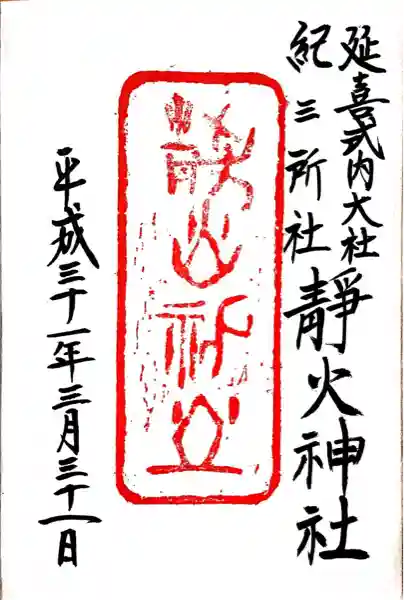 延喜式内大社
紀三所社 靜火神社
平成三十一年三月三十一日